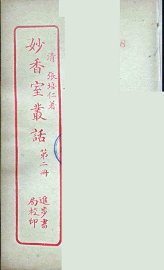 清 張培仁著
妙香室叢話
第二册
進步書
局校印